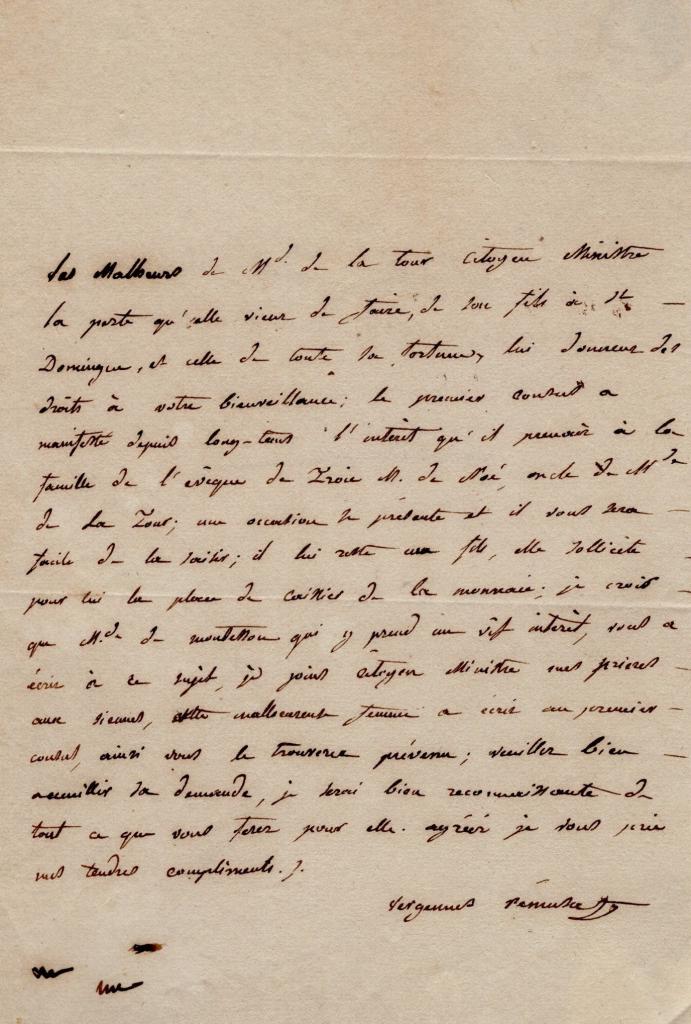 les Malheurs de Md. de la tour citoyen Ministre
la perte qu'elle vient de faire, de son fils à St
Domingue, et celle de toute sa fortune, lui donnent des
droits à votre bienveillance; le premier consul a
manifesté depuis long-tems l'interêt qu'il prenoit à la
famille de l'evêque de Troie M. de Noé, oncle de Mde
de La Tour; une occasion se présente et il vous sera
facile de la saisir; il lui reste un fils, elle sollicite
pour lui la place de caissier de la monnaie; je crois
que Mde. de montesson qui y prend un vif interêt, vous a
écrit à ce sujet, je joins citoyen Ministre mes prieres
aux siennes, cette malheureuse femme a écrit au premier
consul, ainsi vous le trouverez prévenu; veuillez bien
accueillir sa demande, je serai bien reconnaissante de
tout ce que vous ferez pour elle. agréér je vous prie
mes tendres compliments.
vergennes rémusat